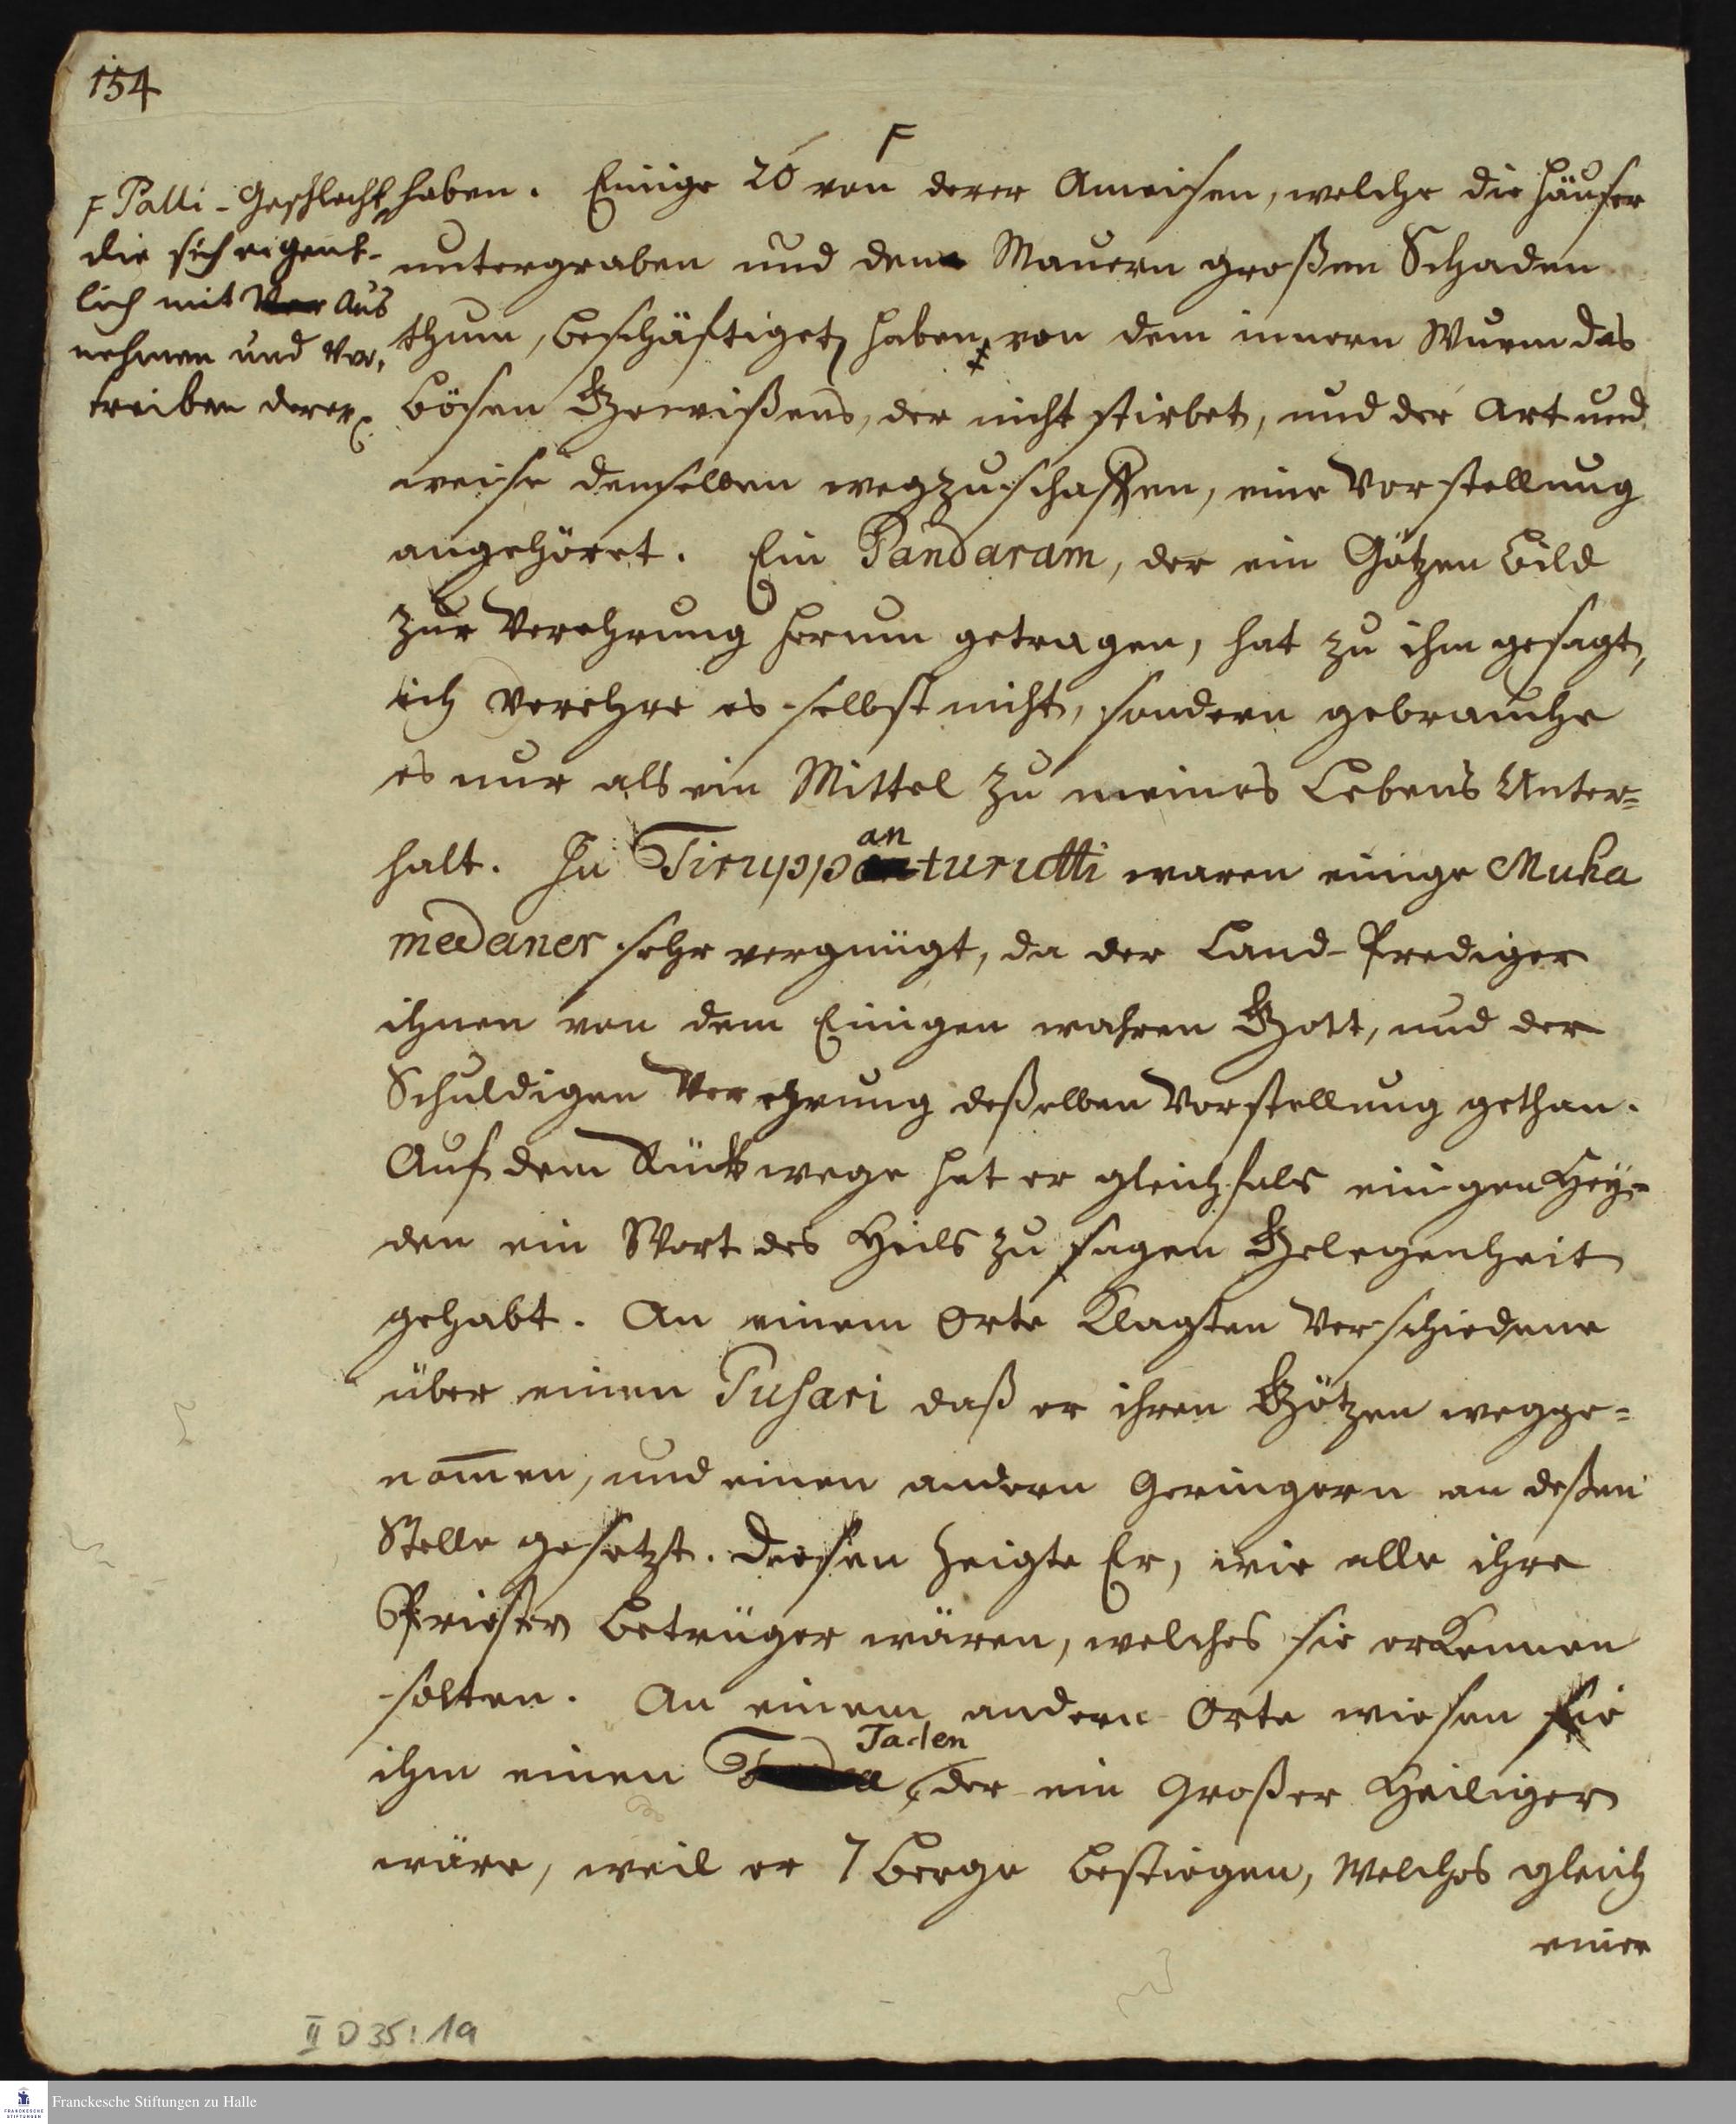 154
F
F Palli-Geschlecht
die sich eigent-
lich mit Aus
nehmen und Ver,
treiben derer
haben. Einige 20 von derer Ameisen, welche die Häuser
untergraben und den Mauern großen Schaden
thun, beschäftiget haben von dem innern Wurm das
bösen Gewißens, der nicht stirbet, und der Art und
weise denselben wegzuschaffen, eine Vorstellung
angehöret. Ein Pandaram, der ein Götzen Bild
zur Verehrung herum getragen, hat zu ihm gesagt,
ich verehre es selbst nicht, sondern gebrauche
es nur als ein Mittel zu meines Lebens Unter=
halt. In Tiruppanturutti waren einige Muha
medaner sehr vergnügt, da der Land-Prediger
ihnen von dem Einigen wahren Gott, und der
Schuldigen Verehrung deßelben Vorstellung gethan.
Auf dem Rückwege hat er gleichfals einigen Hey=
den ein Wort des Heils zu sagen Gelegenheit
gehabt. An einem Orte klagten Verschiedene
über einen Pusari daß er ihren Götzen wegge=
nom̄en, und einen andern Geringern an deßen
Stelle gesetzt. Diesen zeigte Er, wie alle ihre
Priester Betrüger wären, welches sie erkennen
solten. An einem andern Orte wiesen sie
ihm einen Taden, der ein Großer Heiliger
wäre, weil er 7 Berge bestiegen, Welches gleich
einer
II D 35: 19
Franckesche Stiftungen zu Halle